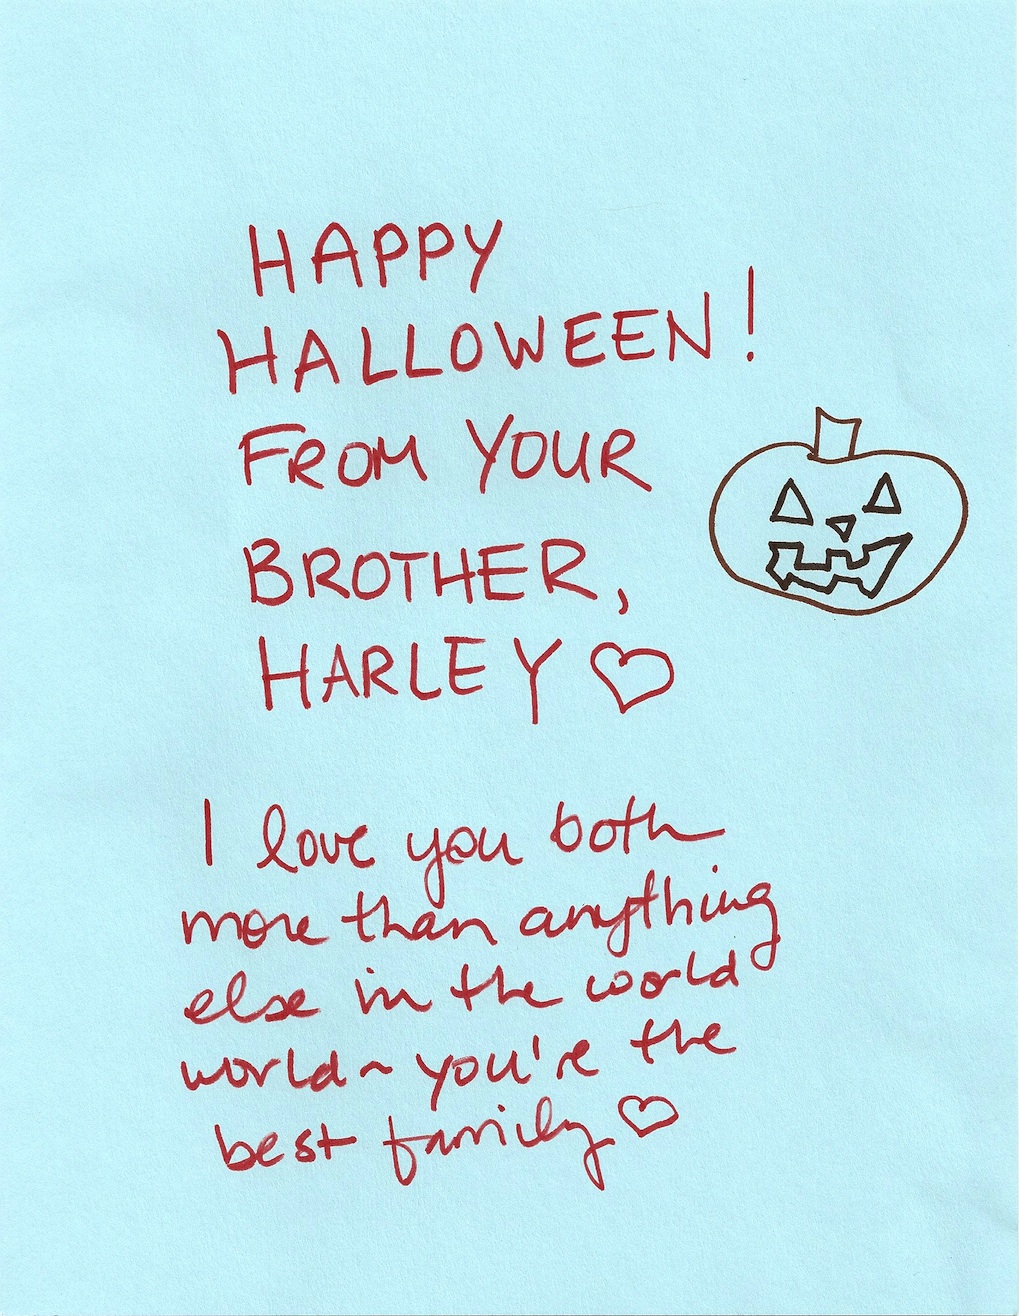 HAPPY
HALLOWEEN!
FROM YOUR
BROTHER,
HARLEY ♡
I love you both
more than anything
else in the world
world~ you're the
best family ♡